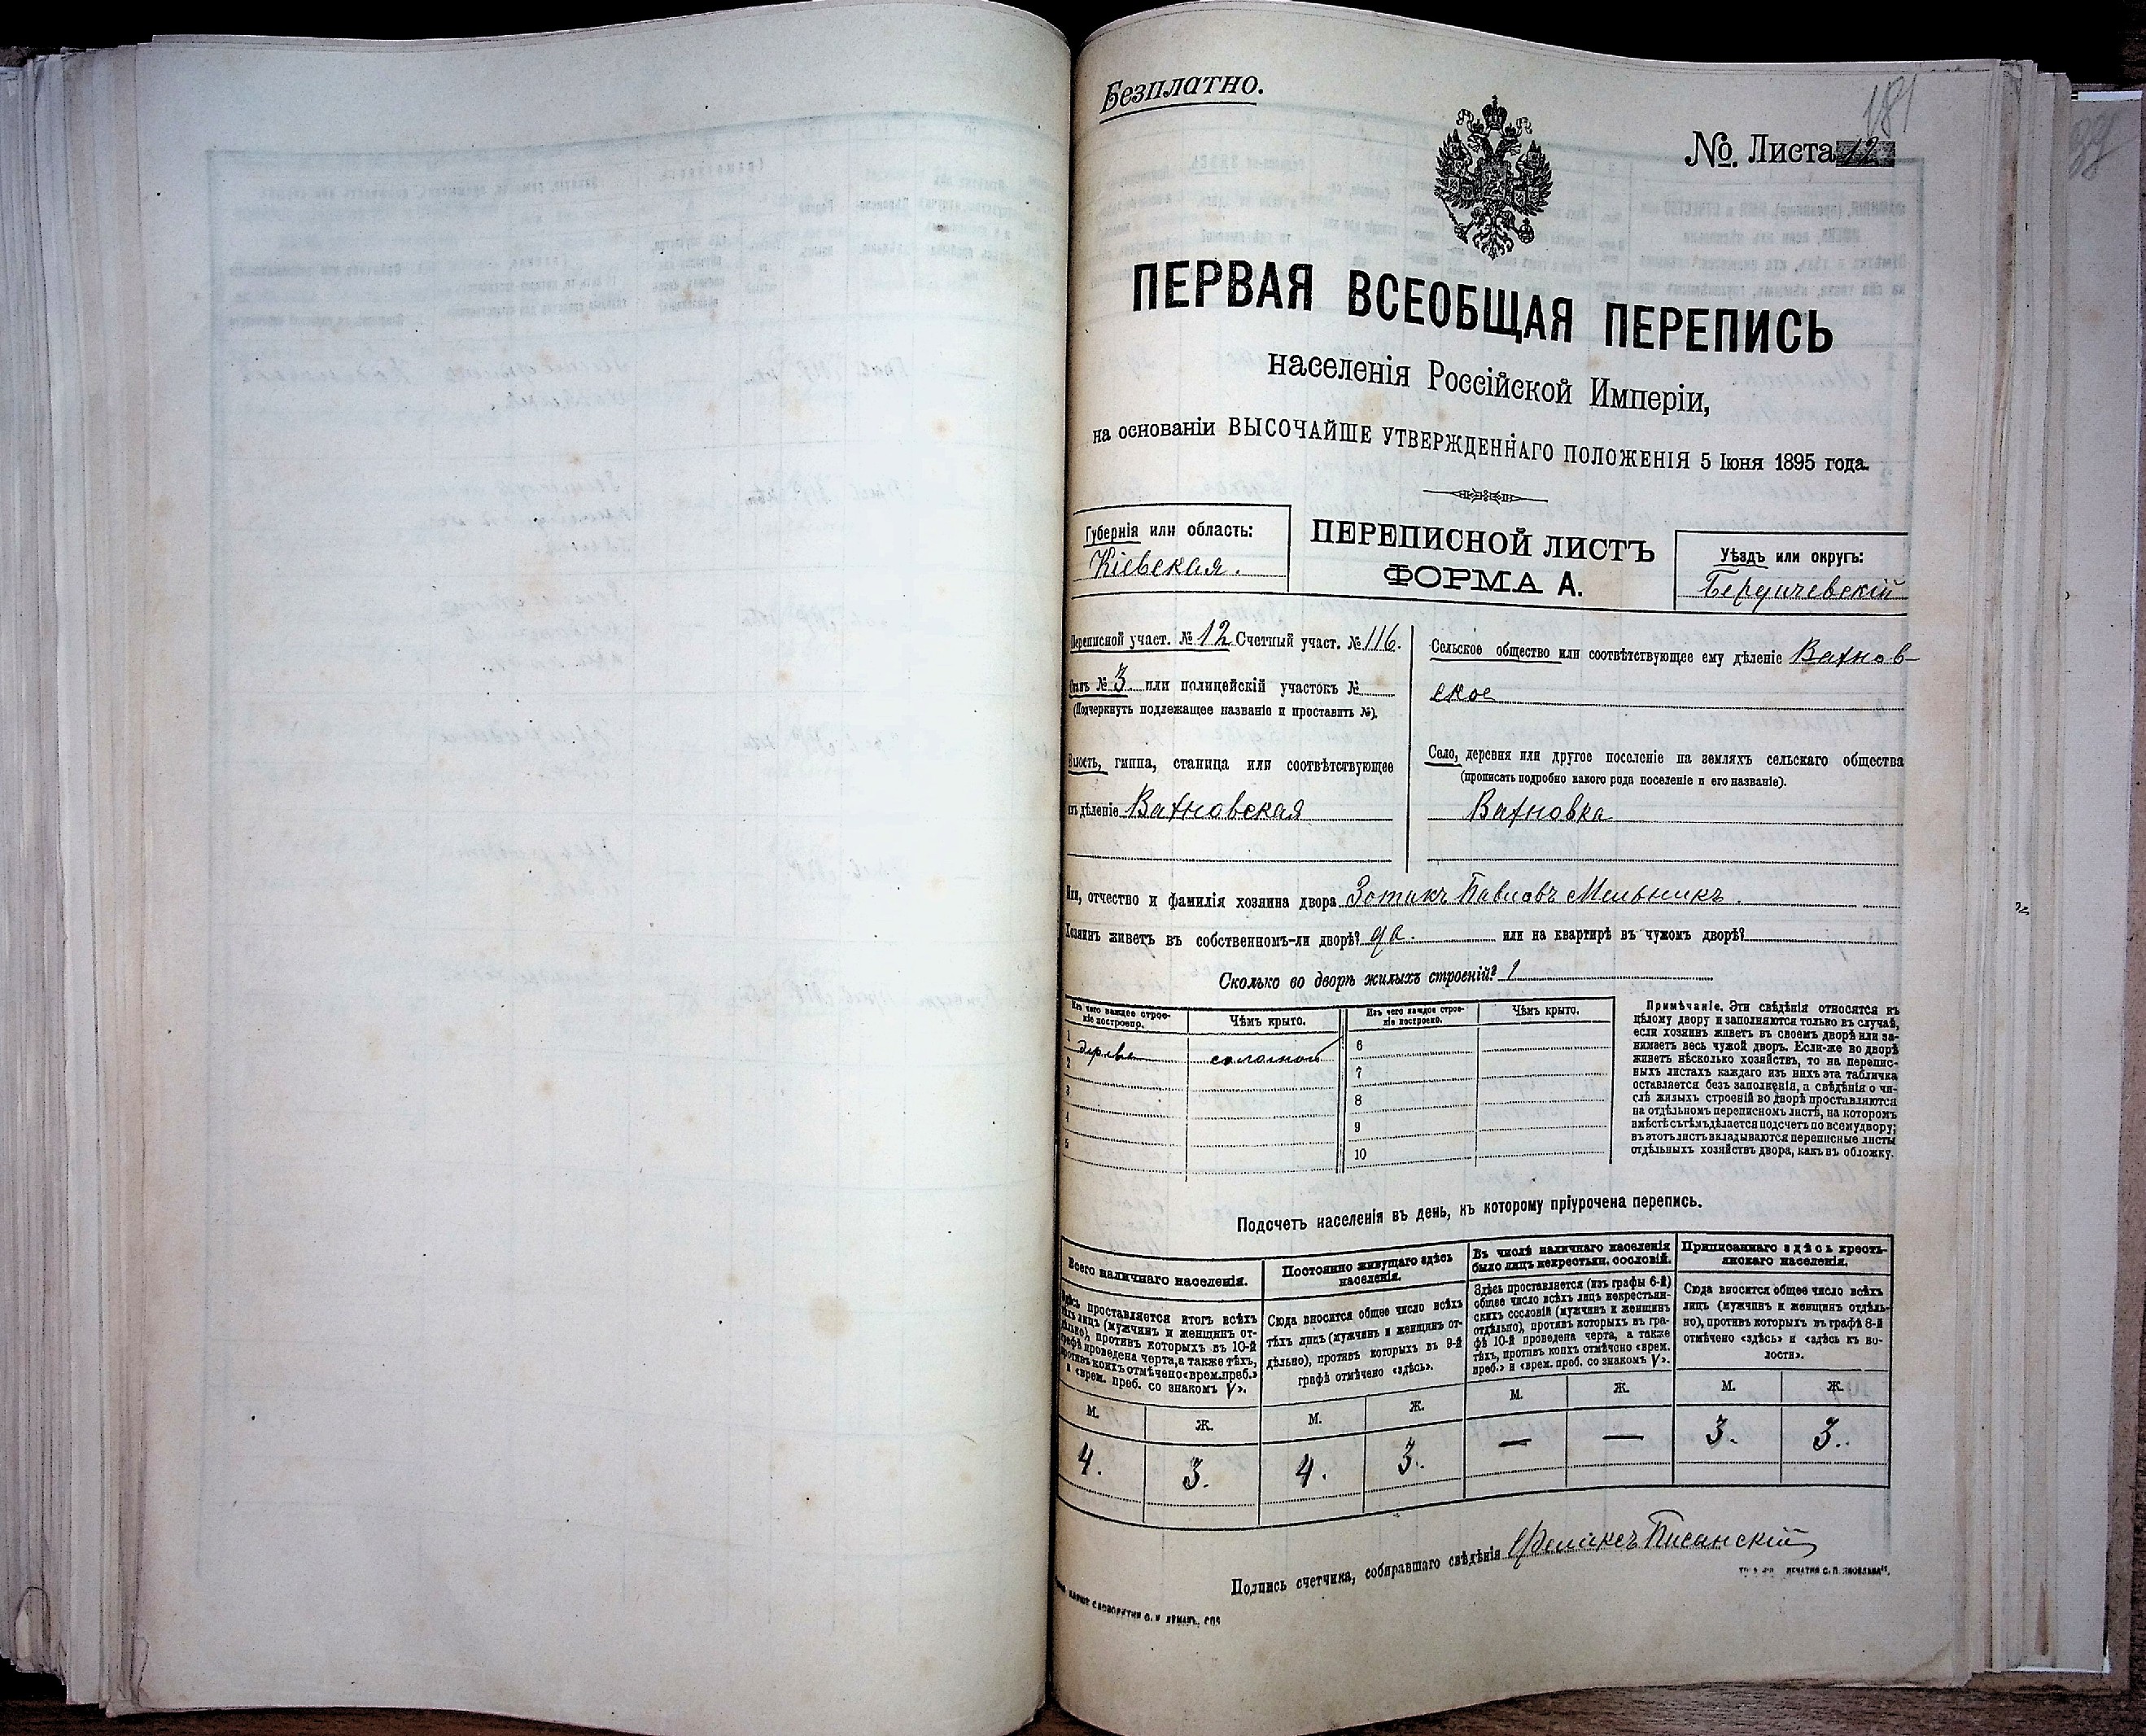 Безплатно.
181
№. Листа 12
ПЕРВАЯ ВСЕОБЩАЯ ПЕРЕПИСЬ
населенія Россійской Имперіи,
на основаніи ВЫСОЧАЙШЕ УТВЕРЖДЕННАГО ПОЛОЖЕНІЯ 5 Іюня 1895 года.
Губернія или область:
Кіевская.
ПЕРЕПИСНОЙ ЛИСТЪ
ФОРМА А.
Уѣздъ или округъ:
Бердичевскій
Переписной участ. № 12 Счетный участ. № 116.
Станъ № 3 или полицейскій участокъ №
(Подчеркнуть подлежащее названіе и проставить №).
Волость, гмина, станица или соотвѣтствующее
имъ дѣленіе Вахновская
Сельское общество или соотвѣтствующее ему дѣленіе Вахнов-
ское
Село, деревня или другое поселеніе на земляхъ сельскаго общества
(прописать подробно какого рода поселеніе и его названіе).
Вахновка
Имя, отчество и фамилія хозяина двора Зотикъ Павловъ Мельникъ.
Хозяинъ живетъ въ собственномъ-ли дворѣ? да. или на квартирѣ въ чужомъ дворѣ?
Сколько во дворѣ жилыхъ строеній? 1
Изъ чего каждое строе-
ніе построено.
Чѣмъ крыто.
Изъ чего каждое строе-
ніе построено.
Чѣмъ крыто.
1 дерева соломой
2
3
4
5
6
7
8
9
10
Примѣчаніе. Эти свѣдѣнія относятся къ
цѣлому двору и заполняются только въ случаѣ,
если хозяинъ живетъ въ своемъ дворѣ или за-
нимаетъ весь чужой дворъ. Если-же во дворѣ
живетъ нѣсколько хозяйствъ, то на перепис-
ныхъ листахъ каждаго изъ нихъ эта табличка
оставляется безъ заполненія, а свѣдѣнія о чи-
слѣ жилыхъ строеній во дворѣ проставляются
на отдѣльномъ переписномъ листѣ, на которомъ
вмѣстѣ съ тѣмъ дѣлается подсчетъ по всему двору;
въ этотъ листъ вкладываются переписные листы
отдѣльныхъ хозяйствъ двора, какъ въ обложку.
Подсчетъ населенія въ день, къ которому пріурочена перепись.
Всего наличнаго населенія.
Здѣсь проставляется итогъ всѣхъ
тѣхъ лицъ (мужчинъ и женщинъ от-
дѣльно), противъ которыхъ въ 10-й
графѣ проведена черта, а также тѣхъ,
противъ коихъ отмѣчено «врем. преб.»
и «врем. преб. со знакомъ V».
М.
Ж.
4.
3.
Постоянно живущаго здѣсь
населенія.
Сюда вносится общее число всѣхъ
тѣхъ лицъ (мужчинъ и женщинъ от-
дѣльно), противъ которыхъ въ 9-й
графѣ отмѣчено «здѣсь».
М.
Ж.
4.
3.
Въ числѣ наличнаго населенія
было лицъ некрестьян. сословій.
Здѣсь проставляется (изъ графы 6-й)
общее число всѣхъ лицъ некрестьян-
скихъ сословій (мужчинъ и женщинъ
отдѣльно), противъ которыхъ въ гра-
фѣ 10-й проведена черта, а также
тѣхъ, противъ коихъ отмѣчено «врем.
преб.» и «врем. преб. со знакомъ V».
М.
Ж.
—
—
Приписаннаго здѣсь кресть-
янскаго населенія.
Сюда вносится общее число всѣхъ
лицъ (мужчинъ и женщинъ отдѣль-
но), противъ которыхъ въ графѣ 8-й
отмѣчено «здѣсь» и «здѣсь къ во-
лости».
М.
Ж.
3.
3.
Подпись счетчика, собиравшаго свѣдѣнія Феликсъ Писанскій